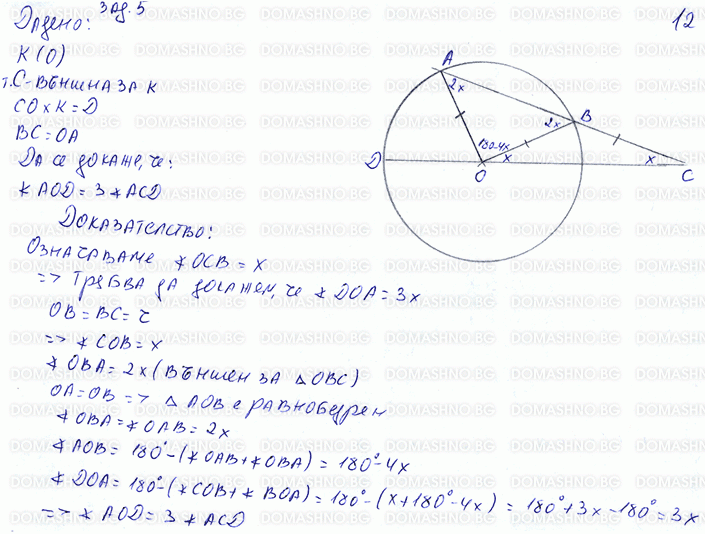 Зад. 5
12
Дадено:
K (O)
т. C - външна за K
CO x K = D
BC = OA
Да се докаже, че:
∢ AOD = 3 ∢ ACD
Доказателство:
Означаваме ∢ OCB = x
=> Трябва да докажем, че ∢ DOA = 3x
OB = BC = r
=> ∢ COB = x
∢ OBA = 2x (външен за △ OBC)
OA = OB => △ AOB е равнобедрен
∢ OBA = ∢ OAB = 2x
∢ AOB = 180° - (∢ OAB + ∢ OBA) = 180° - 4x
∢ DOA = 180° - (∢ COB + ∢ BOA) = 180° - (x + 180° - 4x) = 180° + 3x - 180° = 3x
=> ∢ AOD = 3 ∢ ACD
A
2x
B
2x
180-4x
D
O
x
x
C
DOMASHNO.BG